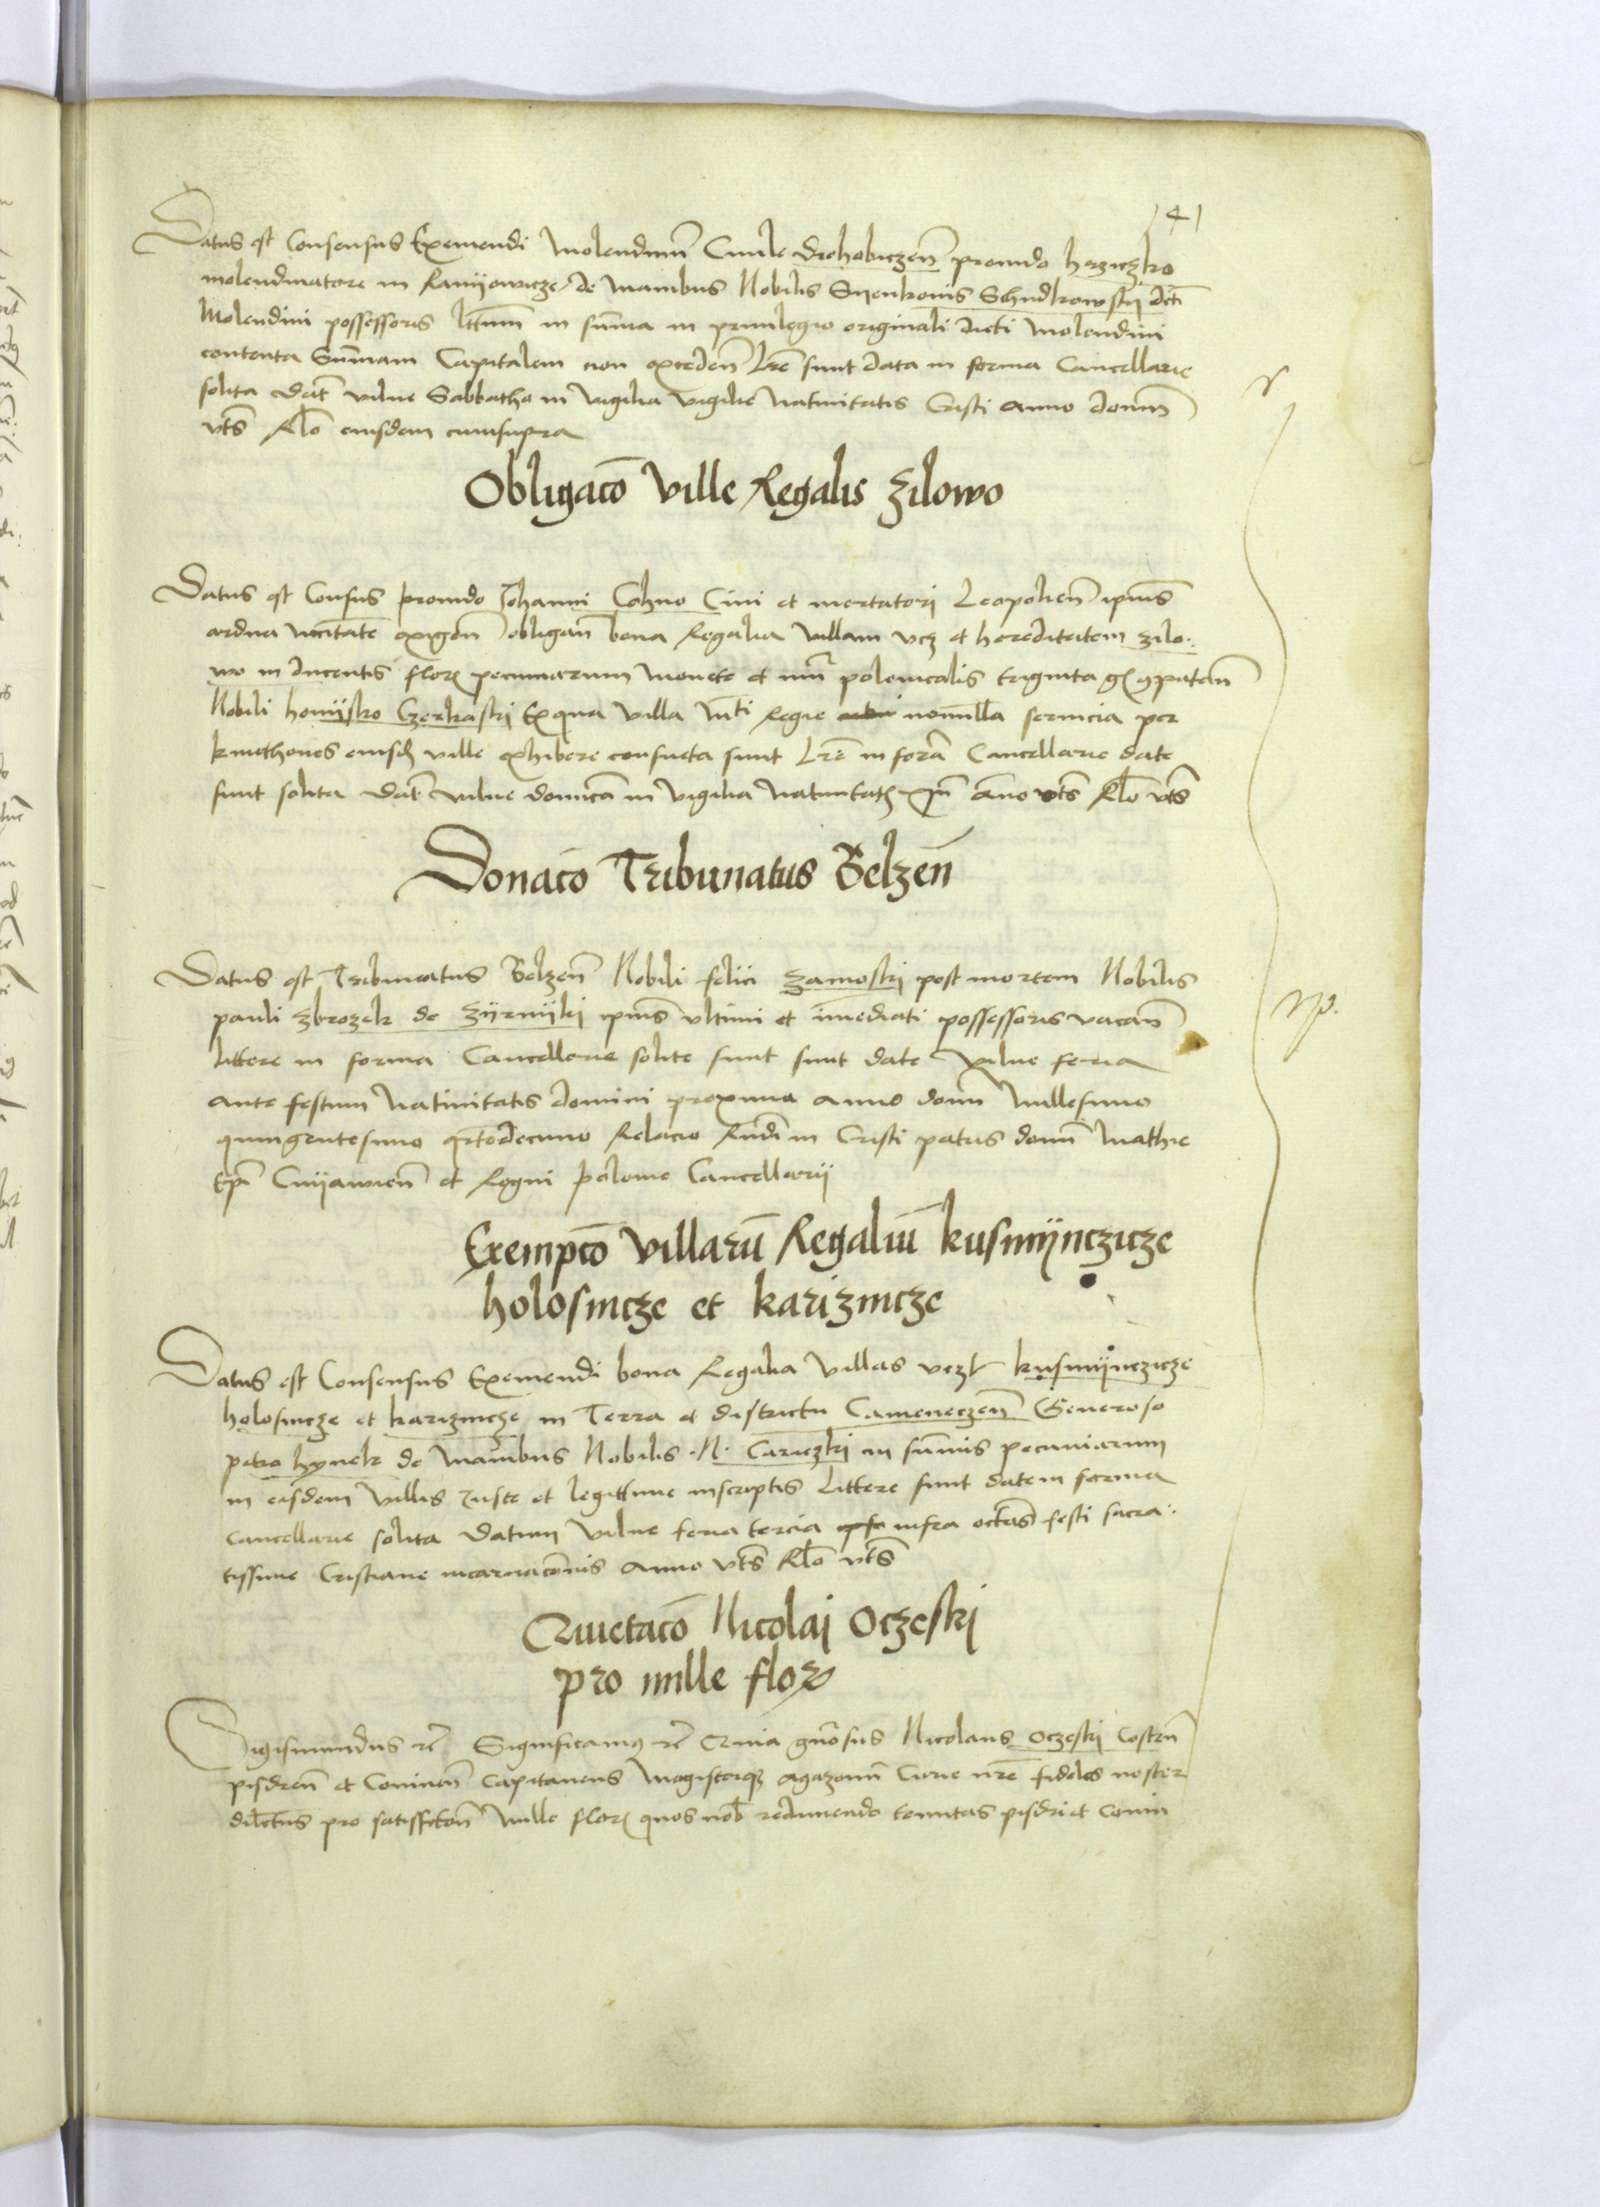 141
Datus est Consensus Exemendi Molendinū Civile Drohobiczeñ provido hrziczko
molendinatore in Raniyowicze de manibus Nobilis Syenkonis Schudkowskij dcti
Molendini possessoris in summa in privilegio originali dicti Molendini
contenta Summam Capitalem non excedeñ Lre sunt data in forma Cancellarie
solita Dat vilne Sabbatho in vigilia vigilie Nativitatis Cristi anno domini
vts Rlo eiusdem cuiussupra
Obligaco Ville Regalis Zilowo
Datus est Consus provido Johanni Cohno Civi et mercatori Leopolieñ ipius
ardua necitate exigeñ obligañ bona Regalia villam vcz et hereditatem zilo:
wo in ducentis florᷣ pecuniarum monete et nūi polonicalis triginta gᷣ 9putañ
Nobili homijsko Czerkaski Ex qua villa Mti Regie nonnulla servicia per
kmethones eiusdᷣ ville exhibere consueta sunt Lre in fora Cancellarie date
sunt solita Dat vilne dominica in vigilia Nativitatᷣ Anno vts Rlo vts
Donaco Tribunatus Belzeñ
Datus est Tribunatus Belzeñ Nobili felici zamoski post mortem Nobilis
pauli zbrozek de zyrnijki ipius vltimi et imediati possessoris vacañ
littere in forma Cancellarie solite sunt sunt date vilne feria
ante festum Nativitatis domini proxima anno domi Millesimo
quingentesimo qrtodecimo Relacio Rndi in Cristi patris domi Mathie
Epi Cuyawieñ et Regni polonie Cancellarij
Exempco Villarū Regaliū kusmijnczicze
holosincze et karizincze
Datus est Consensus Exemendi bona Regalia Villas vczt kusmijnczicze
holosincze et karizincze in Terra et districtu Cameneczeñ Generoso
petro hynek de manibus Nobilis .N. Cariczki in sūmis pecuniarum
in eisdem villis iuste et legittime inscriptis Littere sunt date in forma
cancellarie solita Datum vilne feria tercia infra octas festi sacra:
tissime Cristiane incarnaconis anno vts Rlo vts
Quietaco Nicolai Oczeski
pro mille florᷣ
Sigismundus rc Significamus rc Quia gnosus Nicolaus oczeski Costeñ
pisdreñ et Conineñ Capitaneus Magisterqᷣ agazonū Curie nre fidelis noster
dilectus pro satisfcoñ mille florᷣ quos nob redimendo tenutas pisdri et Conin